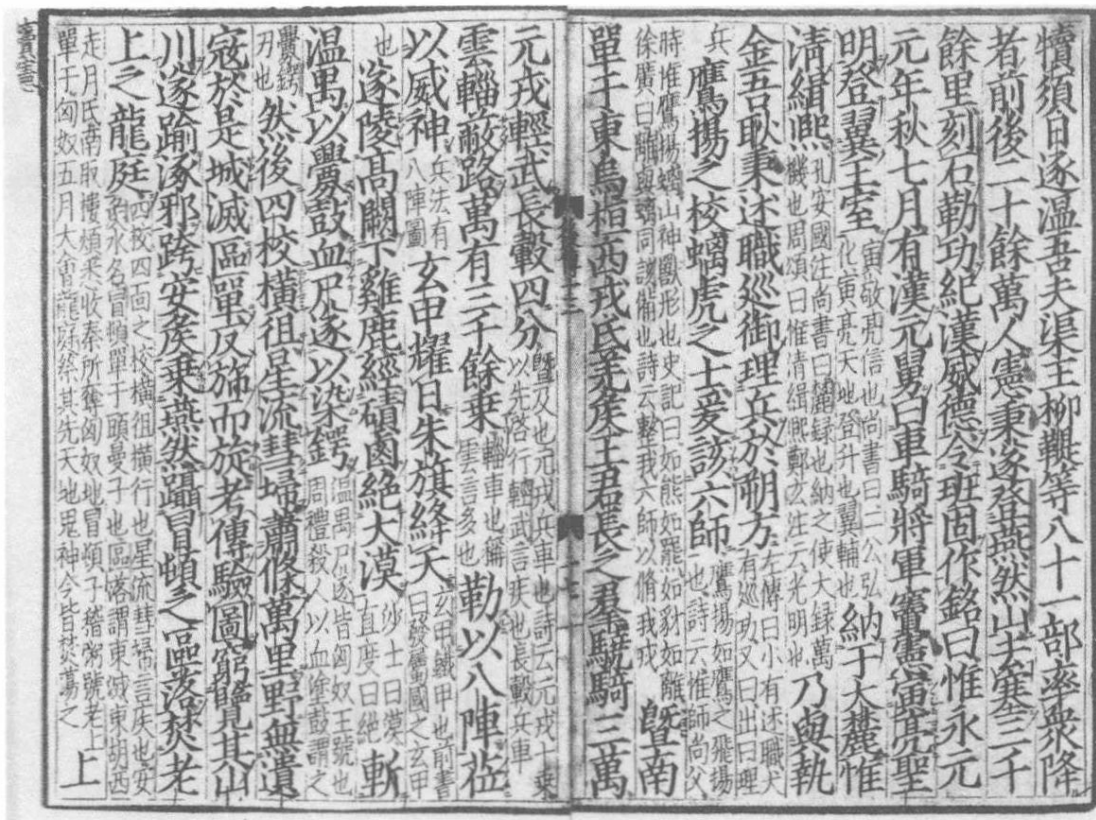 犢須日逐溫吾夫渠王柳鞮等八十一部率衆降
者前後二十餘萬人憲秉遂登燕然山去塞三千
餘里刻石勒功紀漢威德令班固作銘曰惟永元
元年秋七月有漢元舅曰車騎將軍竇憲寅亮聖
明登翼王室寅敬亮信也尚書曰二公弘化寅亮天地登升也翼輔也納于大麓惟
清緝熙孔安國注尚書曰麓録也納之使大録萬機也周頌曰惟清緝熙鄭玄注云光明也乃與執
金吾耿秉述職巡御理兵於朔方左傳曰小有述職大有巡功又曰出曰理
兵鷹揚之校螭虎之士爰該六師鷹揚如鷹之飛揚也詩云惟師尚父
時惟鷹揚螭山神獸形也史記曰如熊如羆如豺如離徐廣曰離與螭同該備也詩云整我六師以脩我戎曁南
單于東烏桓西戎氐羌侯王君長之羣驍騎三萬
元戎輕武長轂四分曁及也元戎兵車也詩云元戎十乘以先啓行輕武言疾也長轂兵車
雲輜蔽路萬有三千餘乘輜車也稱雲言多也勒以八陣莅
以威神兵法有八陣圖玄甲耀日朱旗絳天玄甲鐵甲也前書曰發屬國之玄甲
也遂陵高闕下雞鹿經磧鹵絶大漠沙土曰漠直度曰絶斬
溫禺以釁鼓血尸逐以染鍔溫禺尸逐皆匈奴王號也周禮殺人以血塗鼓謂之
釁鍔刃也然後四校橫徂星流彗埽蕭條萬里野無遺
寇於是域滅區單反旆而旋考傳驗圖窮覽其山
川遂踰涿邪跨安侯乘燕然躡冒頓之區落焚老
上之龍庭四校四面之校橫徂橫行也星流彗埽言疾也安侯水名冒頓單于頭曼子也區落謂東滅東胡西
走月氏南取樓煩悉收秦所奪匈奴地冒頓子稽粥號老上單于匈奴五月大會龍庭祭其先天地鬼神今皆焚蕩之上